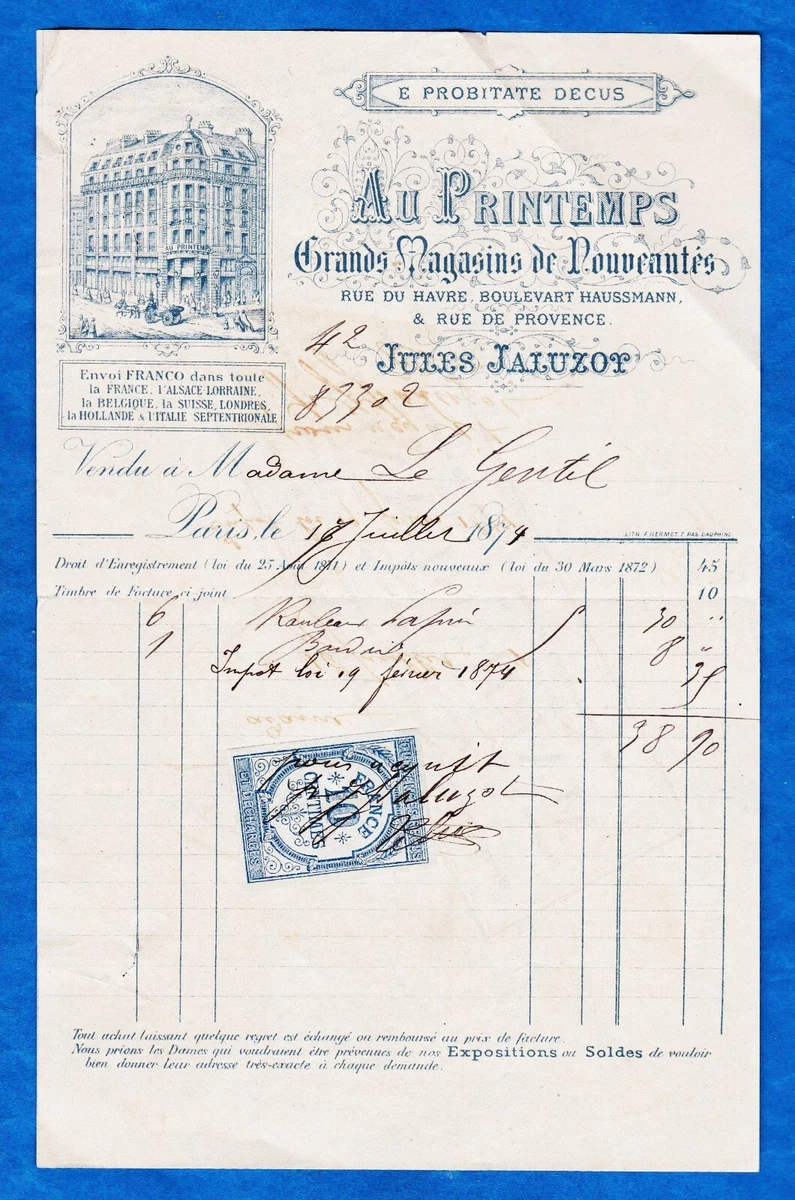 E PROBITATE DECUS
AU PRINTEMPS
Grands Magasins de Nouveautés
RUE DU HAVRE, BOULEVART HAUSSMANN,
& RUE DE PROVENCE.
JULES JALUZOT
AU PRINTEMPS
Envoi FRANCO dans toute
la FRANCE, l'ALSACE-LORRAINE,
la BELGIQUE, la SUISSE, LONDRES,
la HOLLANDE & l'ITALIE SEPTENTRIONALE
42
83302
Vendu à Madame Le Gentil
Paris, le 17 Juillet 1874
LITH. F. HERMET, 7, PAS. DAUPHINE
Droit d'Enregistrement (loi du 25 Août 1871) et Impôts nouveaux (loi du 30 Mars 1872) 45
Timbre de Facture ci joint 10
6 5 30 "
1 8 "
Impot loi 19 février 1874 35
38 90
pour acquit
Jaluzot
FRANCE
10
CENTIMES
ET DÉCHARGES
Tout achat laissant quelque regret est échangé ou remboursé au prix de facture.
Nous prions les Dames qui voudraient être prévenues de nos Expositions ou Soldes de vouloir
bien donner leur adresse très-exacte à chaque demande.